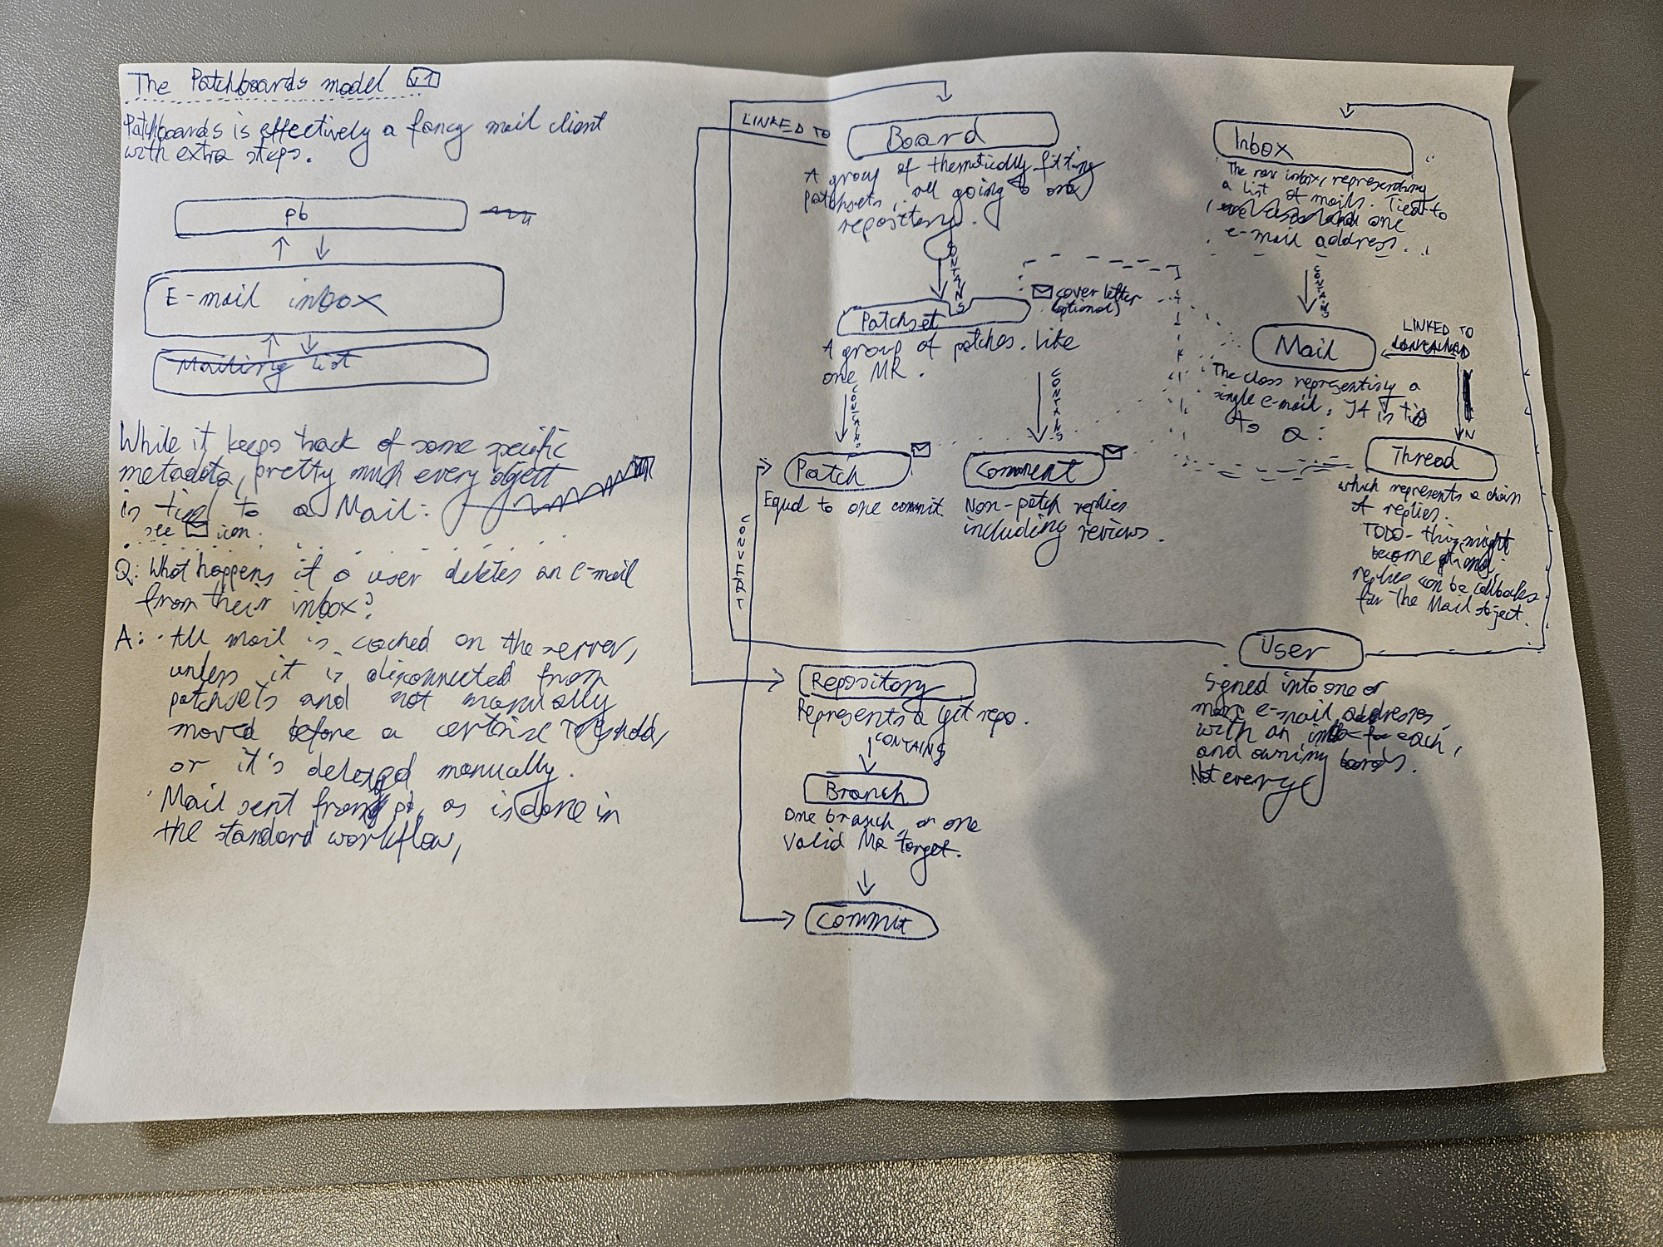 The Patchboards model v1
Patchboards is effectively a fancy mail client
with extra steps.
pb
E-mail inbox
Mailing list
While it keeps track of some specific
metadata, pretty much every object
is tied to a Mail:
see icon.
Q: What happens if a user deletes an e-mail
from their inbox?
A: · All mail is cached on the server,
unless it is disconnected from
patchsets and not manually
moved before a certain
or it's deleted manually.
· Mail sent from pb, as is done in
the standard workflow,
LINKED TO
Board
A group of thematically fitting
patchsets, all going to one
repository.
CONTAINS
Patchset
cover letter
(optional)
A group of patches. Like
one MR.
CONTAINS
CONTAINS
Patch
Equal to one commit.
Comment
Non-patch replies
including reviews.
CONVERT
Repository
Represents a git repo.
CONTAINS
Branch
One branch or one
valid MR target.
Commit
Inbox
The raw inbox, representing
a list of mails. Tied to
one
e-mail address.
CONTAINS
Mail
LINKED TO
The class representing a
single e-mail. It is tied
to a:
IN
Thread
which represents a chain
of replies.
TODO - this might
become
replies can be callbacks
for the Mail object.
User
Signed into one or
more e-mail addresses
with an inbox for each,
and owning boards.
Not every